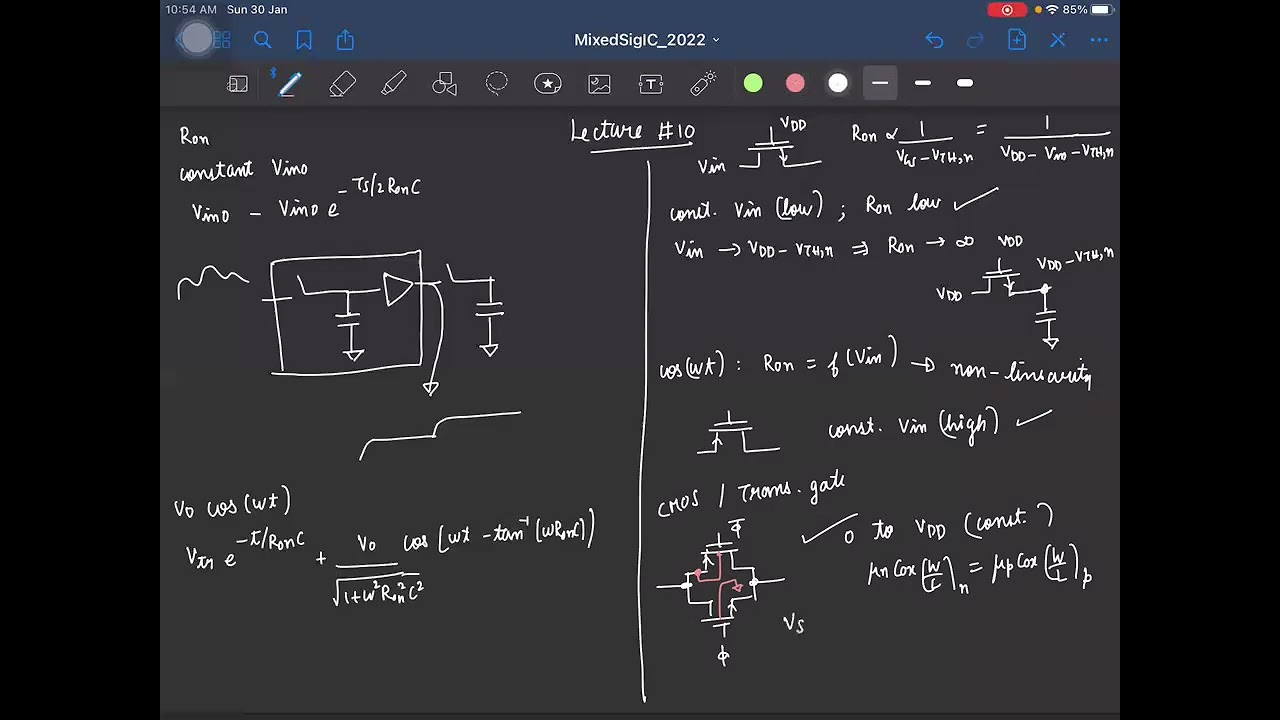 10:54 AM Sun 30 Jan
85%
MixedSigIC_2022
Lecture #10
Ron
constant Vino
Vino - Vino e^{-Ts/2RonC}
V₀ cos(wt)
e^{-t/RonC} + V₀/√(1+w²Ron²C²) cos(wt - tan⁻¹(wRonC))
VDD
Vin
Ron ∝ 1/(VGS - VTH,n) = 1/(VDD - Vino - VTH,n)
const. Vin (low) ; Ron low ✓
Vin → VDD - VTH,n ⇒ Ron → ∞
VDD
VDD - VTH,n
VDD
cos(wt) : Ron = f(Vin) → non-linearity
const. Vin (high) ✓
CMOS / Trans. gate
Φ̅
✓ 0 to VDD (const.)
μn Cox (W/L)n = μp Cox (W/L)p
Vs
Φ